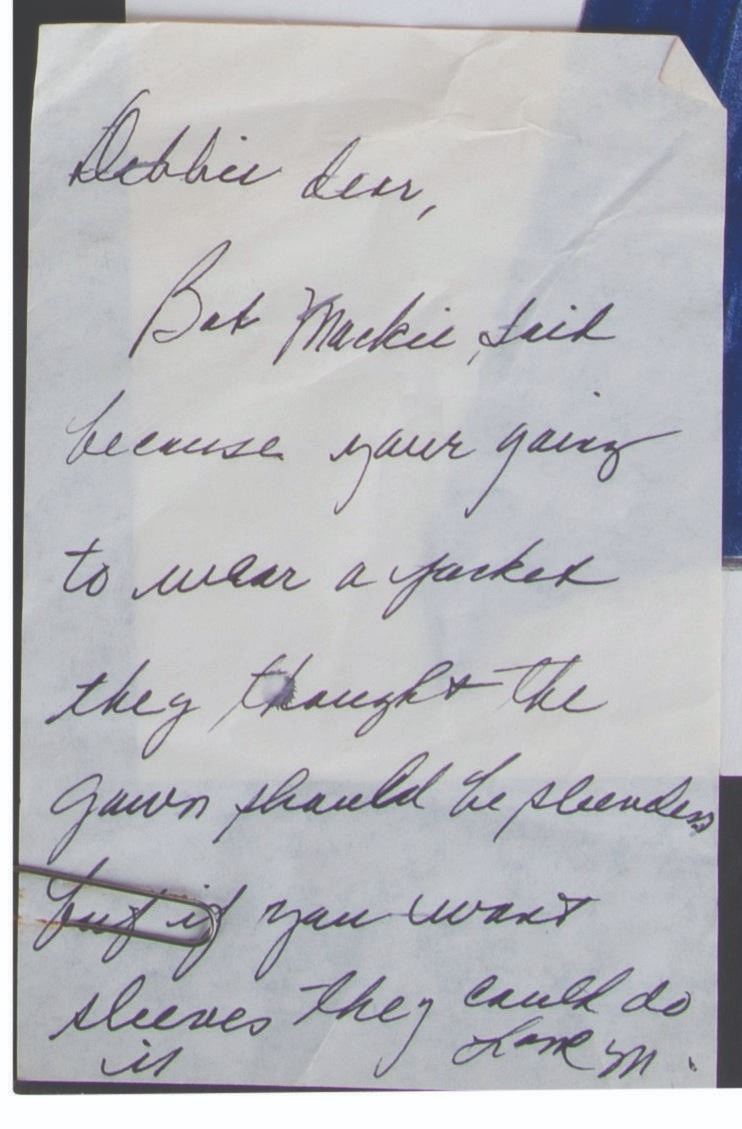 Debbie dear,
Bob Mackie said
because your going
to wear a jacket
they thought the
gown should be slender
but if you want
sleeves they could do
it Love M.